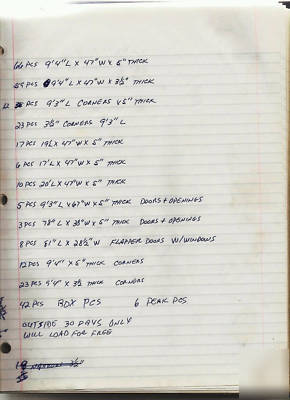 66 PCS 9'4" L X 47" W X 5" THICK
59 PCS 9'4" L X 47" W X 3½" THICK
PCS 9'3" L CORNERS X 5" THICK
23 PCS 3½" CORNERS 9'3" L
17 PCS 19'L X 47" W X 5" THICK
6 PCS 17'L X 47" W X 5" THICK
10 PCS 20'L X 47" W X 5" THICK
5 PCS 9'3" L X 67" W X 5" THICK DOORS + OPENINGS
3 PCS 78" L X 38" W X 5" THICK DOORS + OPENINGS
8 PCS 81" L X 28½" W FLAPPER DOORS W/WINDOWS
12 PCS 9'4" X 5" THICK CORNERS
23 PCS 9'4" X 3½ THICK CORNERS
42 PCS BOX PCS 6 PEAK PCS
OUTSIDE 30 DAYS ONLY
WILL LOAD FOR FREE
3½"